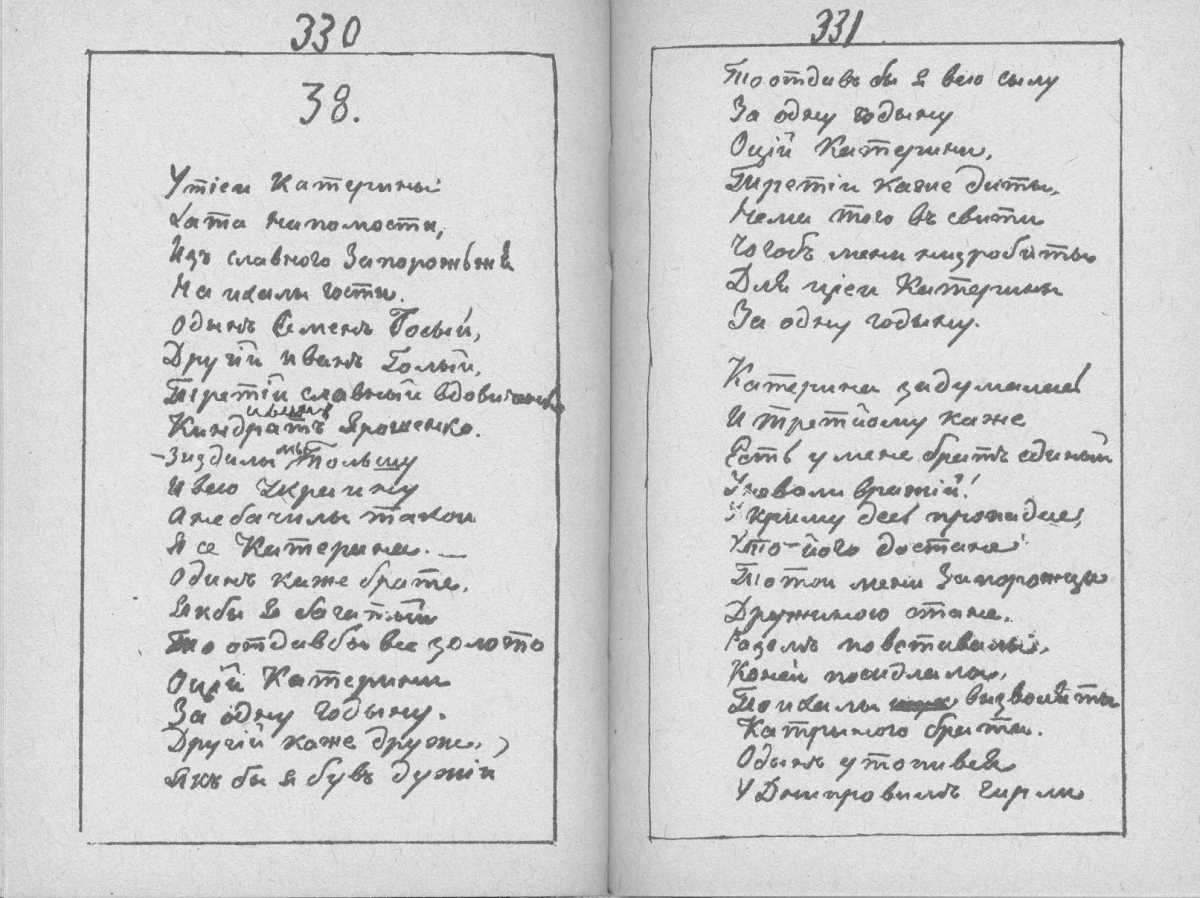 330
38.
У тіеи Катерины
Хата на помости,
Изъ славного Запорожьжя
Наихалы гости.
Одынъ Семенъ Босый,
Другій Иванъ Голый,
Третій славный вдовиченко
Киндратъ Ярошенко.
Зъиздилы мы Польшу
И всю Украину
А не бачилы такои
Якъ се Катерина. —
Одинъ каже брате,
Якбы я багатый
То отдавбы все золото
Оцій Катерини
За одну годыну.
Другій каже друже,
Якъ бы я бувъ дужій
331
То отдавъ бы я всю сылу
За одну годыну
Оцій Катерини.
Третій каже диты,
Нема того въ свити
Чогобъ мени не зробыты
Для ціеи Катерины
За одну годыну.
Катерина задумалась
И третйому каже
Есть у мене братъ единый
У неволи вражій!
У Криму десь пропадае,
Хто-його достане
То той мени Запорожци
Дружиною стане.
Разомъ повставалы,
Коней посидлалы,
Поихалы визволяты
Катрыного брата.
Одынъ утопився
У Днипровимъ гирли